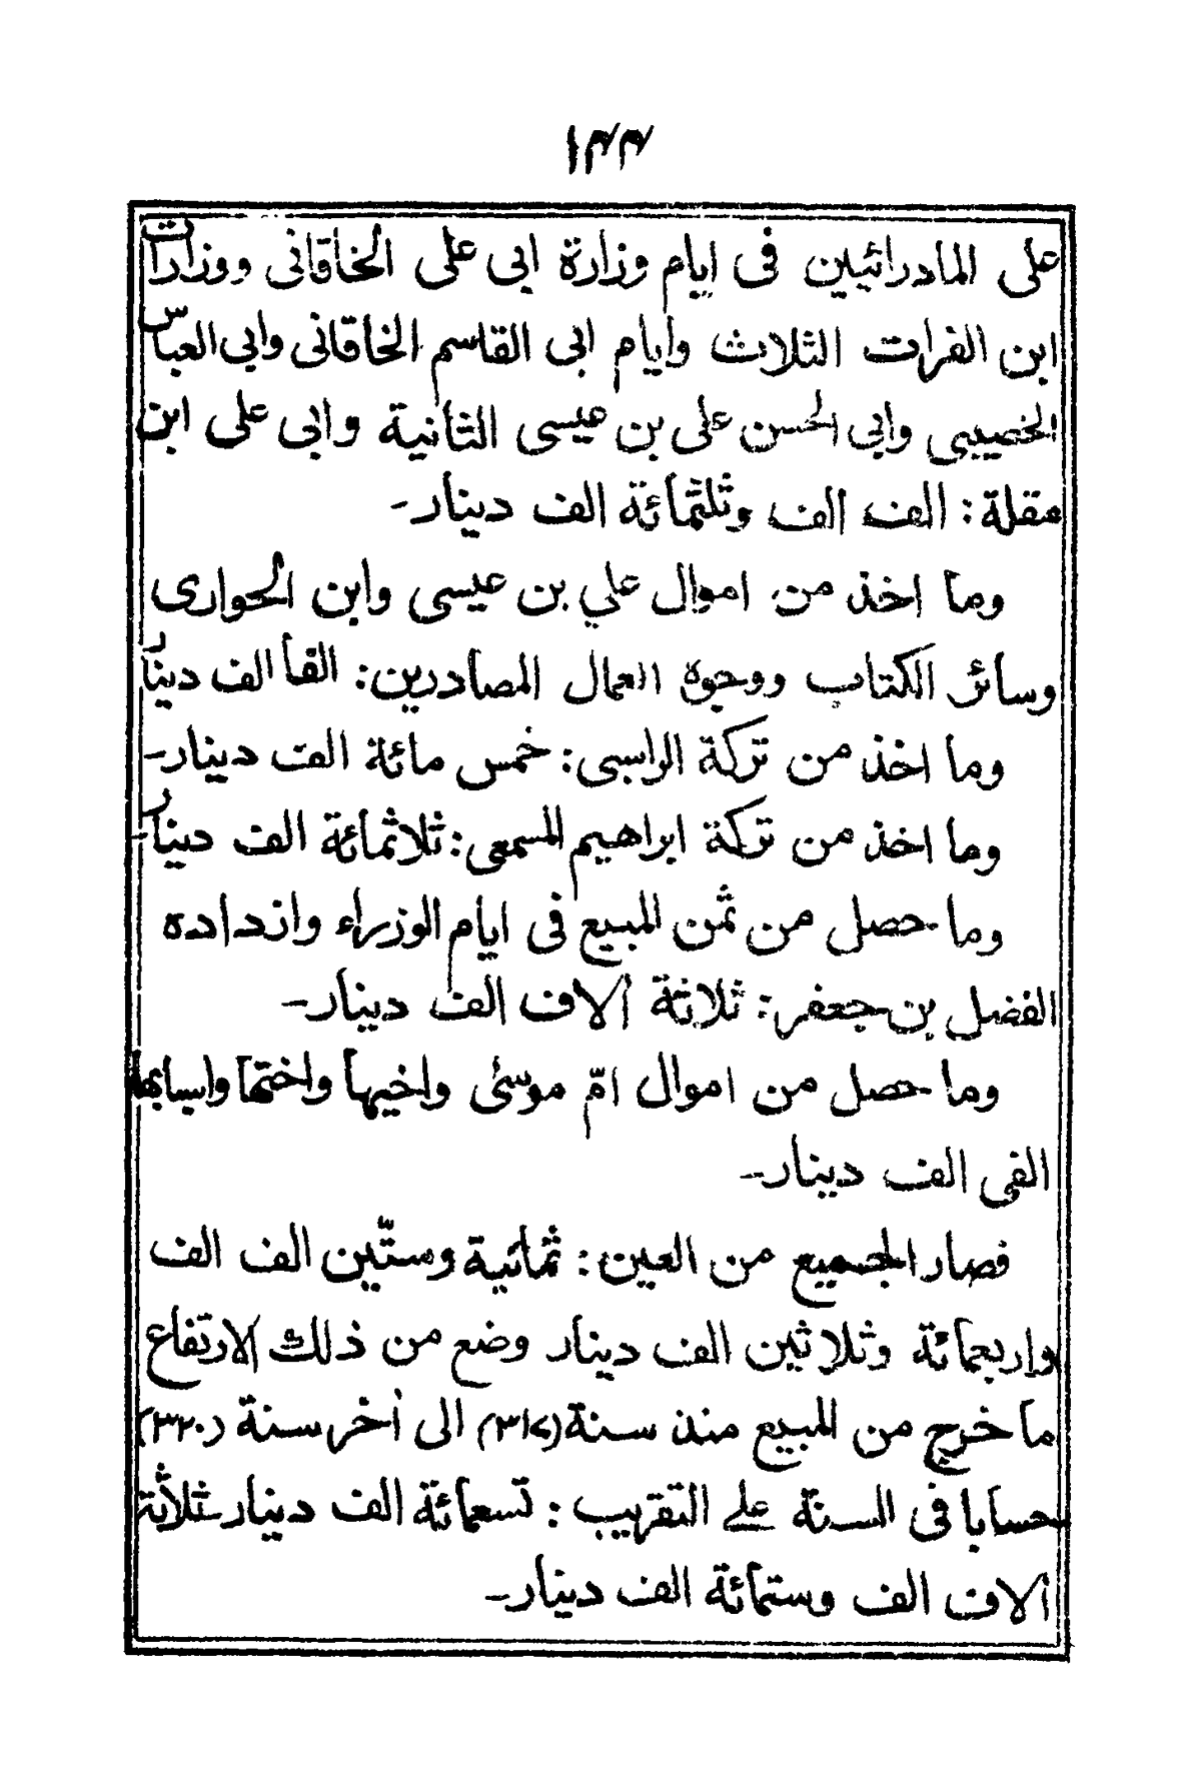 ١٣٣
على المادرائيين فى ايام وزارة ابى على الخاقانى ووزارات
ابن الفرات الثلاث وأيام ابى القاسم الخاقانى وابي العباس
الخصيبى وابي الحسن على بن عيسى الثانية وابى على ابن
مقلة: الف الف وثلثمائة الف دينار-
وما اخذ من اموال علي بن عيسى وابن الحوارى
وسائر الكتاب ووجوه العمال المصادرين: الفا الف دينار
وما اخذ من تركة الراسبى: خمس مائة الف دينار-
وما اخذ من تركة ابراهيم المسمعى: ثلاثمائة الف دينار-
وما حصل من ثمن المبيع فى ايام الوزراء وازداده
الفضل بن جعفر: ثلاثة ألاف الف دينار-
وما حصل من اموال امّ موسىٰ واخيها واختها واسبابها
الفى الف دينار-
فصار الجميع من العين: ثمانية وستّين الف الف
واربعمائة وثلاثين الف دينار وضع من ذلك الارتفاع
ما خرج من المبيع منذ سنة (٣١٧) الى أخر سنة (٣٢٠)
حسابا فى السنة على التقريب: تسعمائة الف دينار ثلاثة
ألاف الف وستمائة الف دينار-